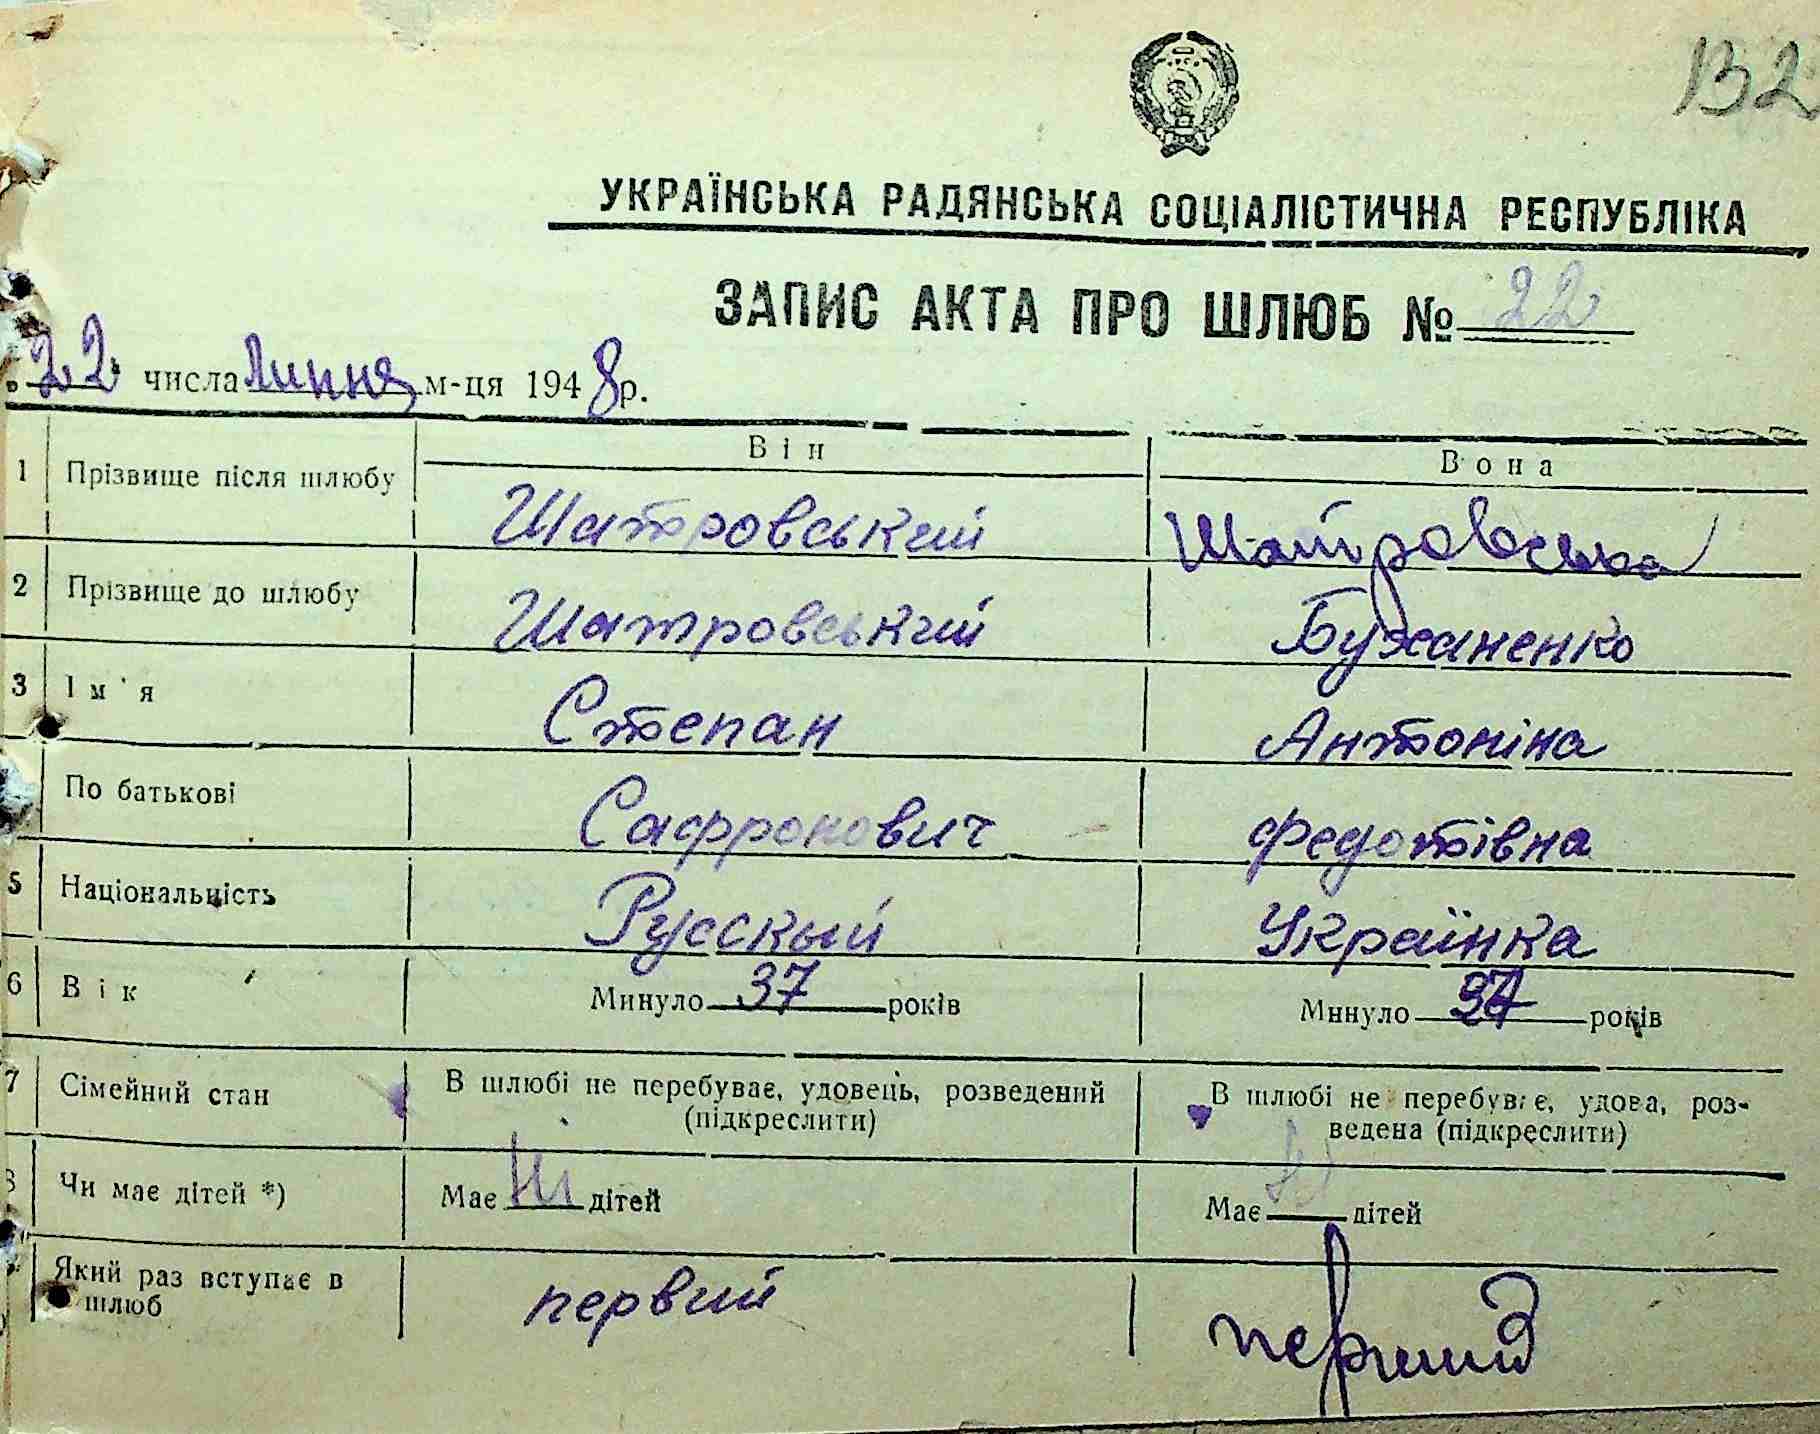 132
УКРАЇНСЬКА РАДЯНСЬКА СОЦІАЛІСТИЧНА РЕСПУБЛІКА
ЗАПИС АКТА ПРО ШЛЮБ № 22
22 числа липня м-ця 1948 р.
Він Вона
1 Прізвище після шлюбу Шатровський Шатровська
2 Прізвище до шлюбу Шатровський Бужаненко
3 Ім'я Степан Антоніна
По батькові Сафронович Федотівна
5 Національність Русскый Українка
6 Вік Минуло 37 років Минуло років
7 Сімейний стан В шлюбі не перебуває, удовець, розведений В шлюбі не перебуває, удова, роз-
(підкреслити) ведена (підкреслити)
8 Чи має дітей *) Має ні дітей Має дітей
Який раз вступає в первий перший
шлюб